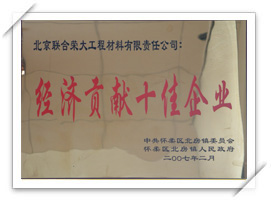 北京联合荣大工程材料有限责任公司：
经济贡献十佳企业
中共怀柔区北房镇委员会
怀柔区北房镇人民政府
二00七年二月